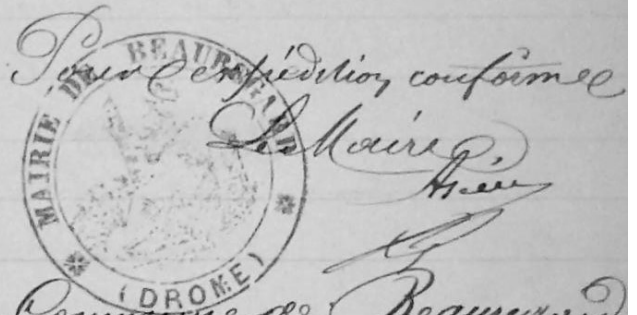 Pour expédition conforme
Le Maire
MAIRIE DE BEAUREGARD
(DROME)
Commune de Beauregard